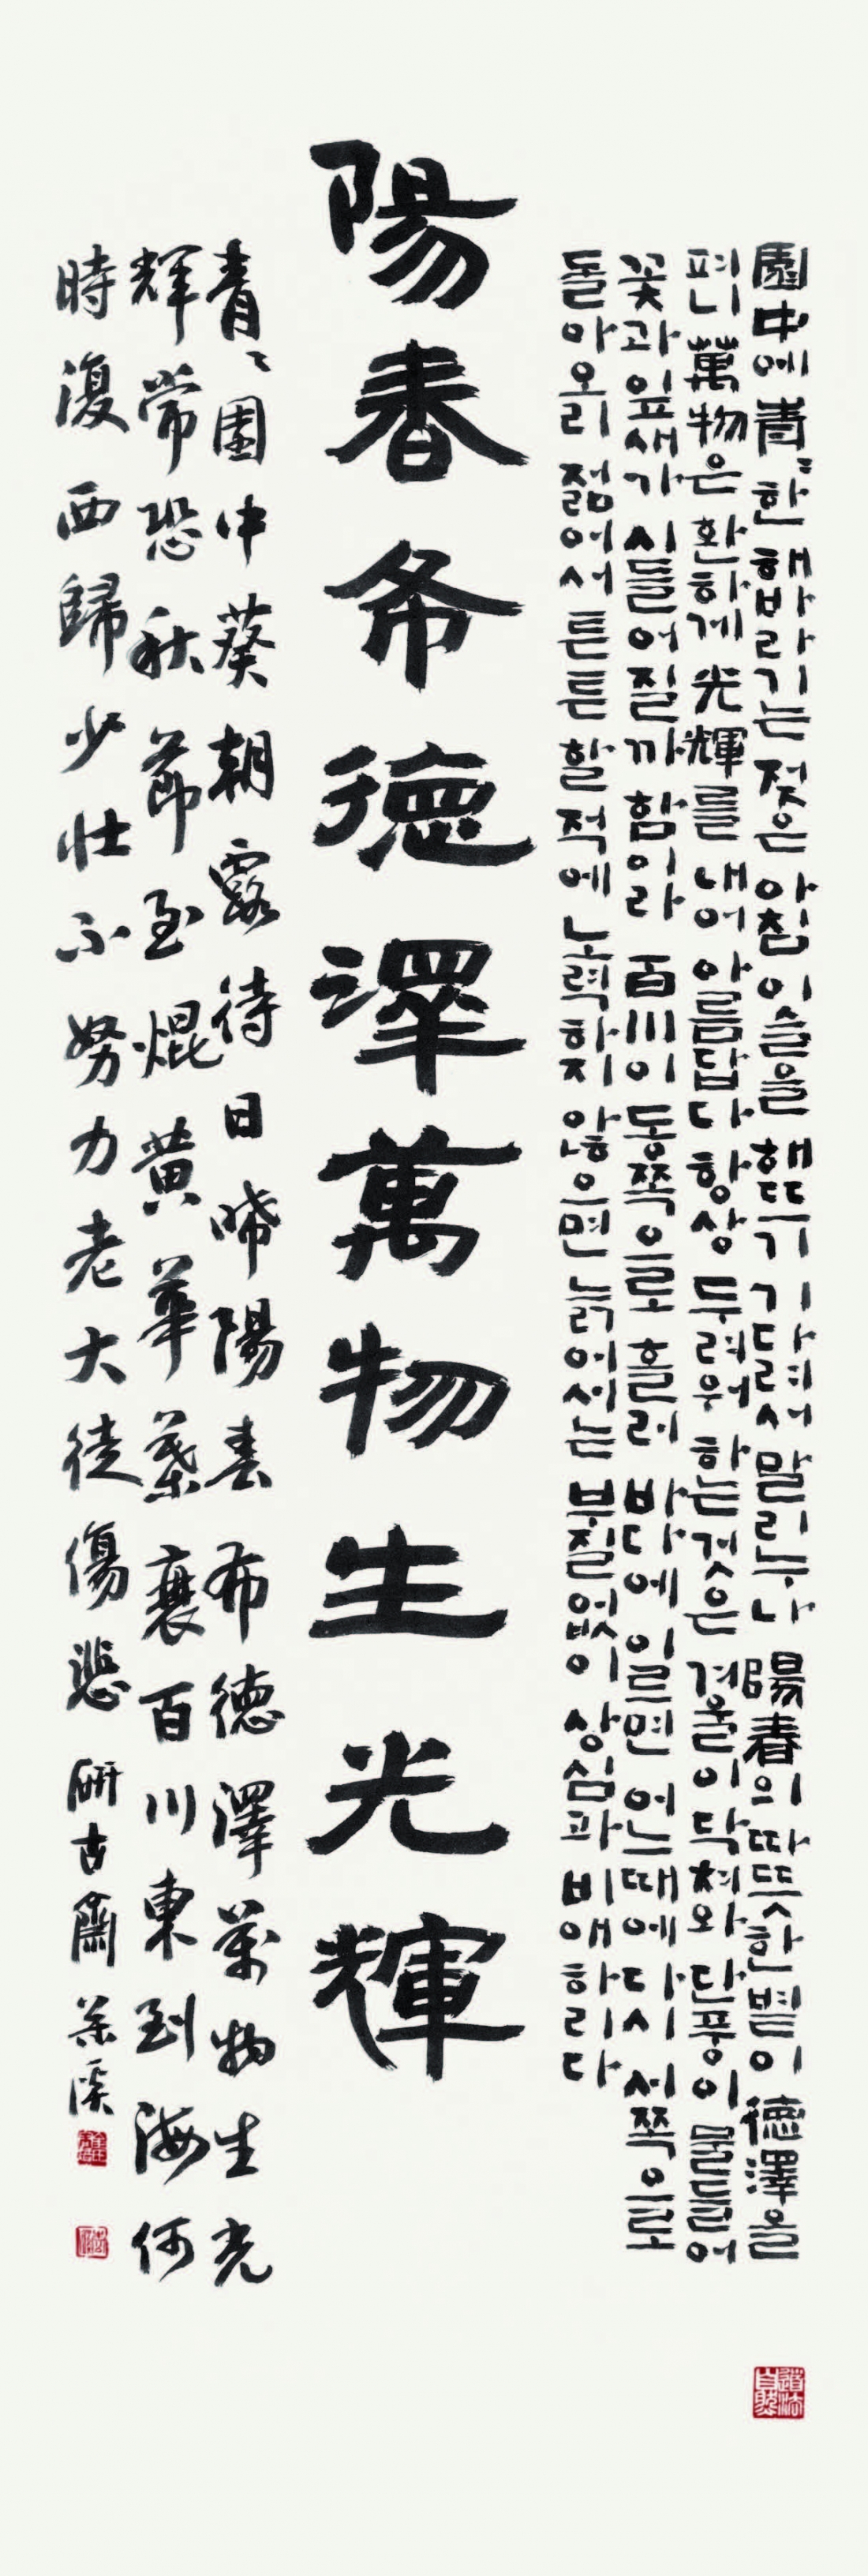 園中에 靑〻한 해바라기는 젖은 아침 이슬을 해뜨기 기다려서 말리누나 陽春의 따뜻한 볕이 德澤을
펴니 萬物은 환하게 光輝를 내어 아름답다 항상 두려워 하는것은 겨울이 닥쳐와 단풍이 물들어
꽃과 잎새가 시들어질까 함이라 百川이 동쪽으로 흘러 바다에 이르면 어느때에 다시 서쪽으로
돌아오리 젊어서 튼튼할 적에 노력하지 않으면 늙어서는 부질없이 상심과 비애하리다
道法自然
陽春布德澤萬物生光輝
靑〻園中葵朝露待日晞陽春布德澤萬物生光
輝常恐秋節至焜黃華葉衰百川東到海何
時復西歸少壯不努力老大徒傷悲 硏古齋